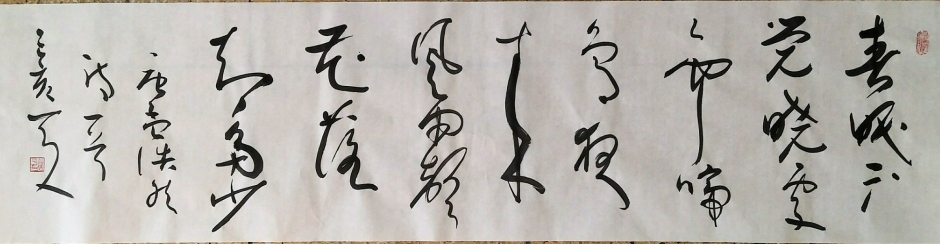 春眠不
觉晓处
々闻啼
鸟夜
来
风雨声
花落
知多少
唐孟浩然
诗一首
己亥